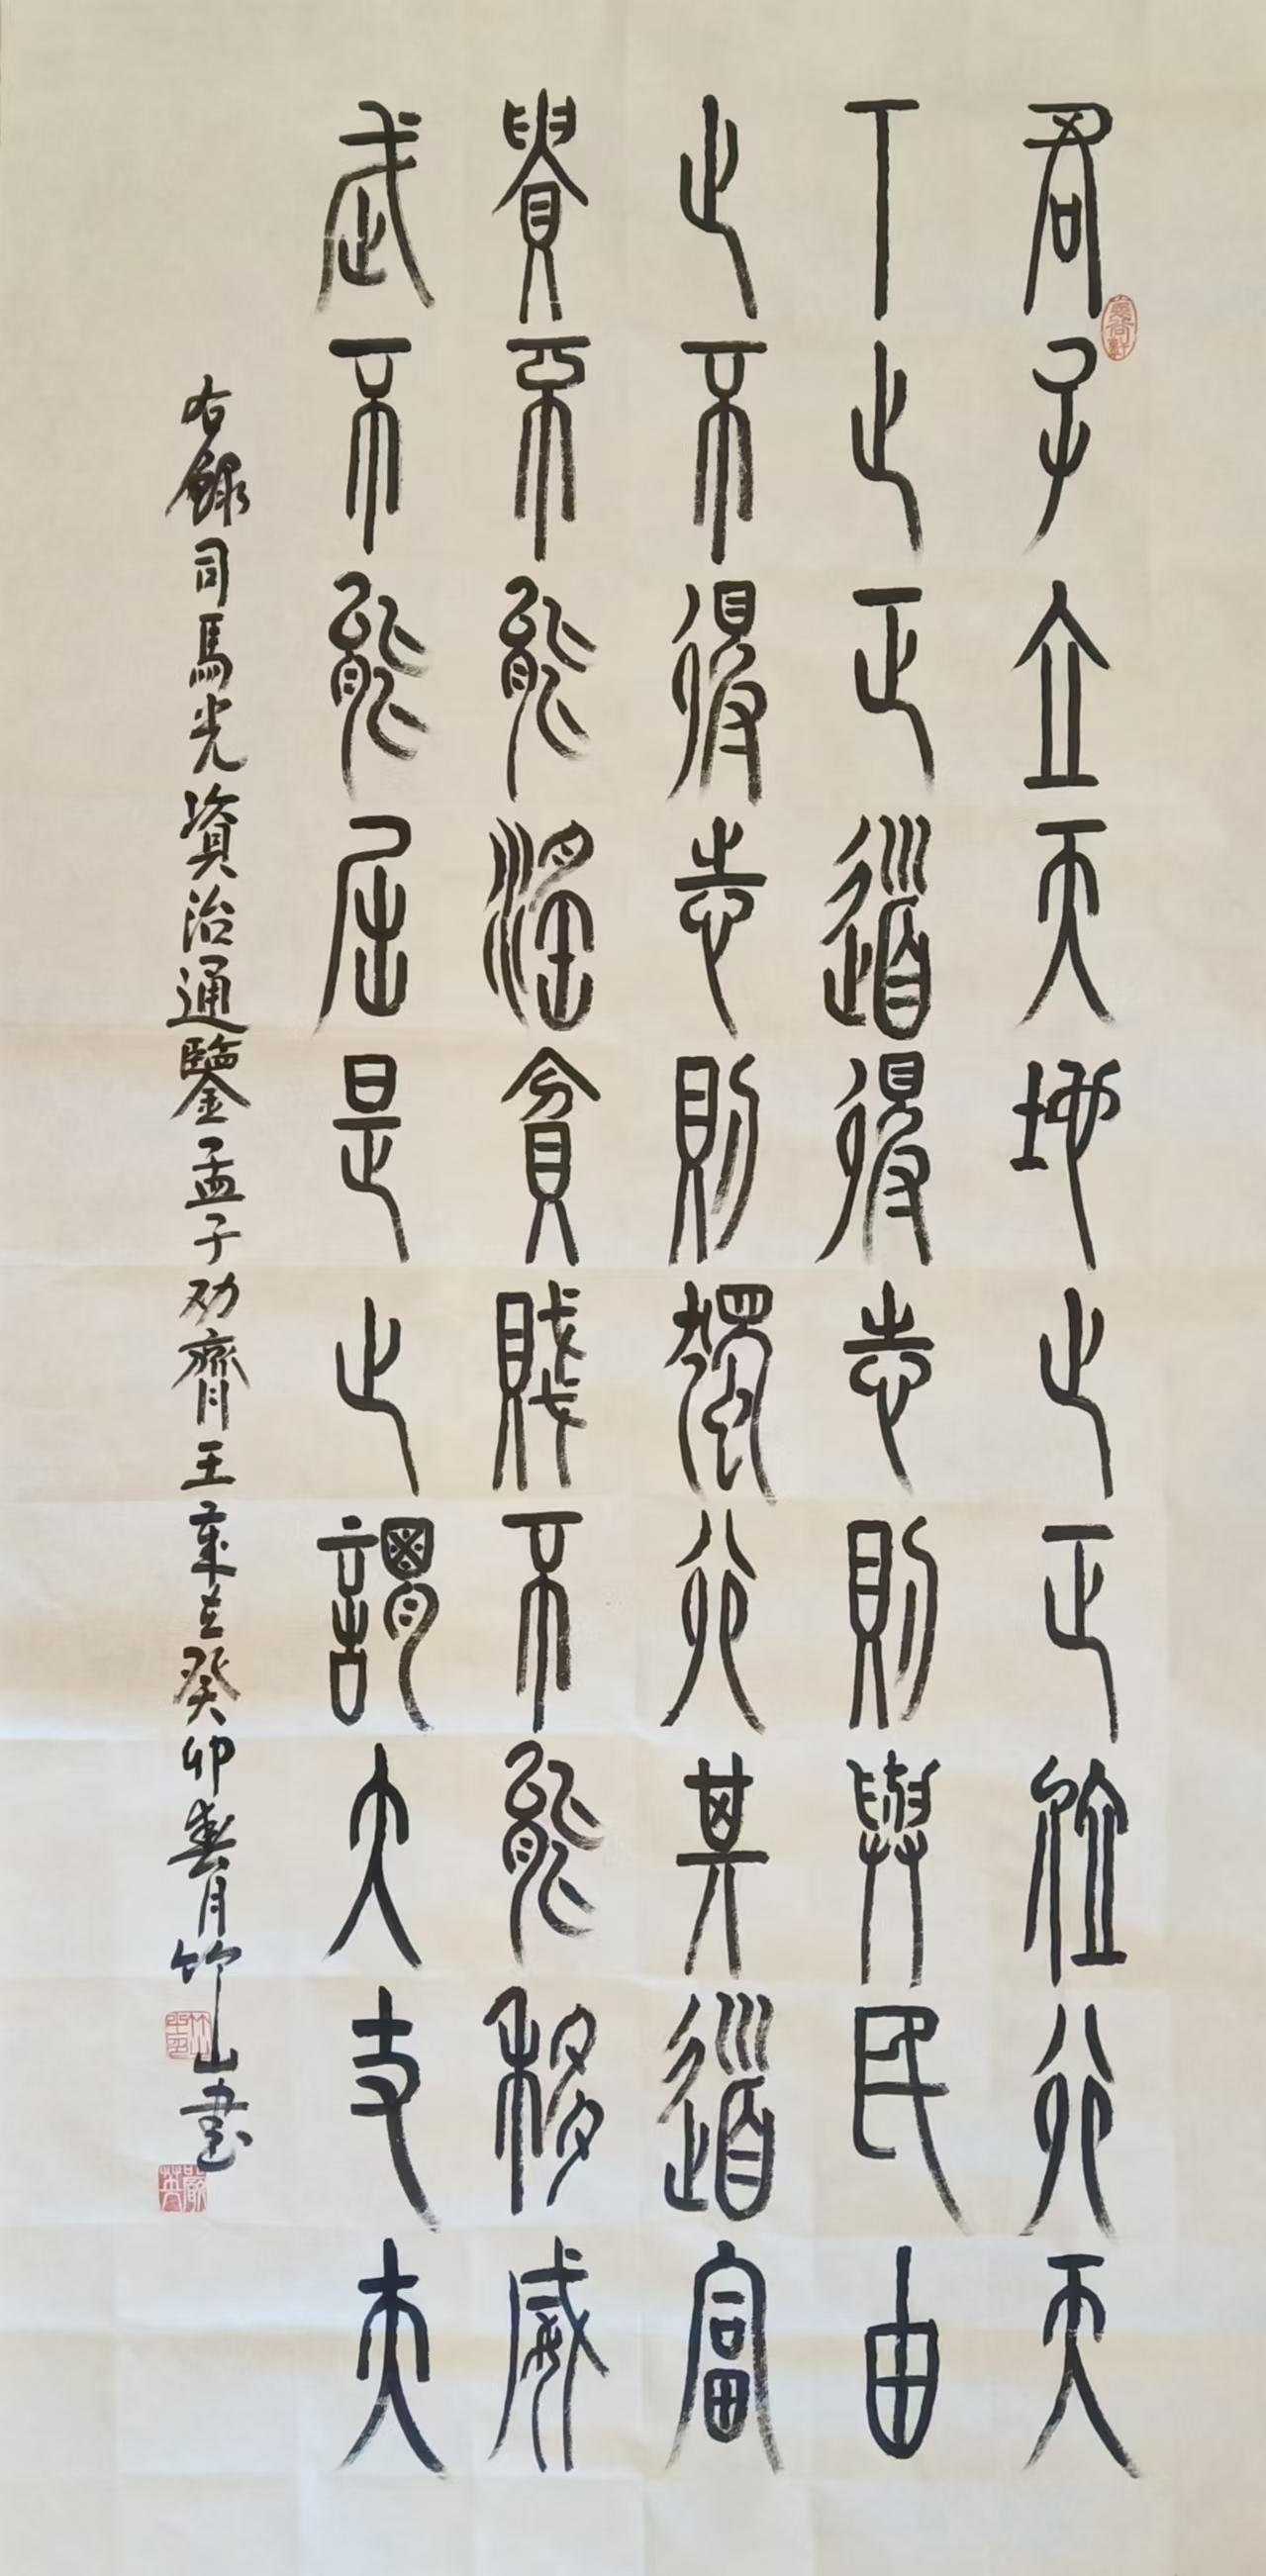 君子立天地之正位行天
下之正道得志則與民由
之不得志則獨行其道富
貴不能淫貧賤不能移威
武不能屈是之謂大丈夫
右錄司馬光資治通鑒孟子劝齊王歲在癸卯春月竹山書
嚴英